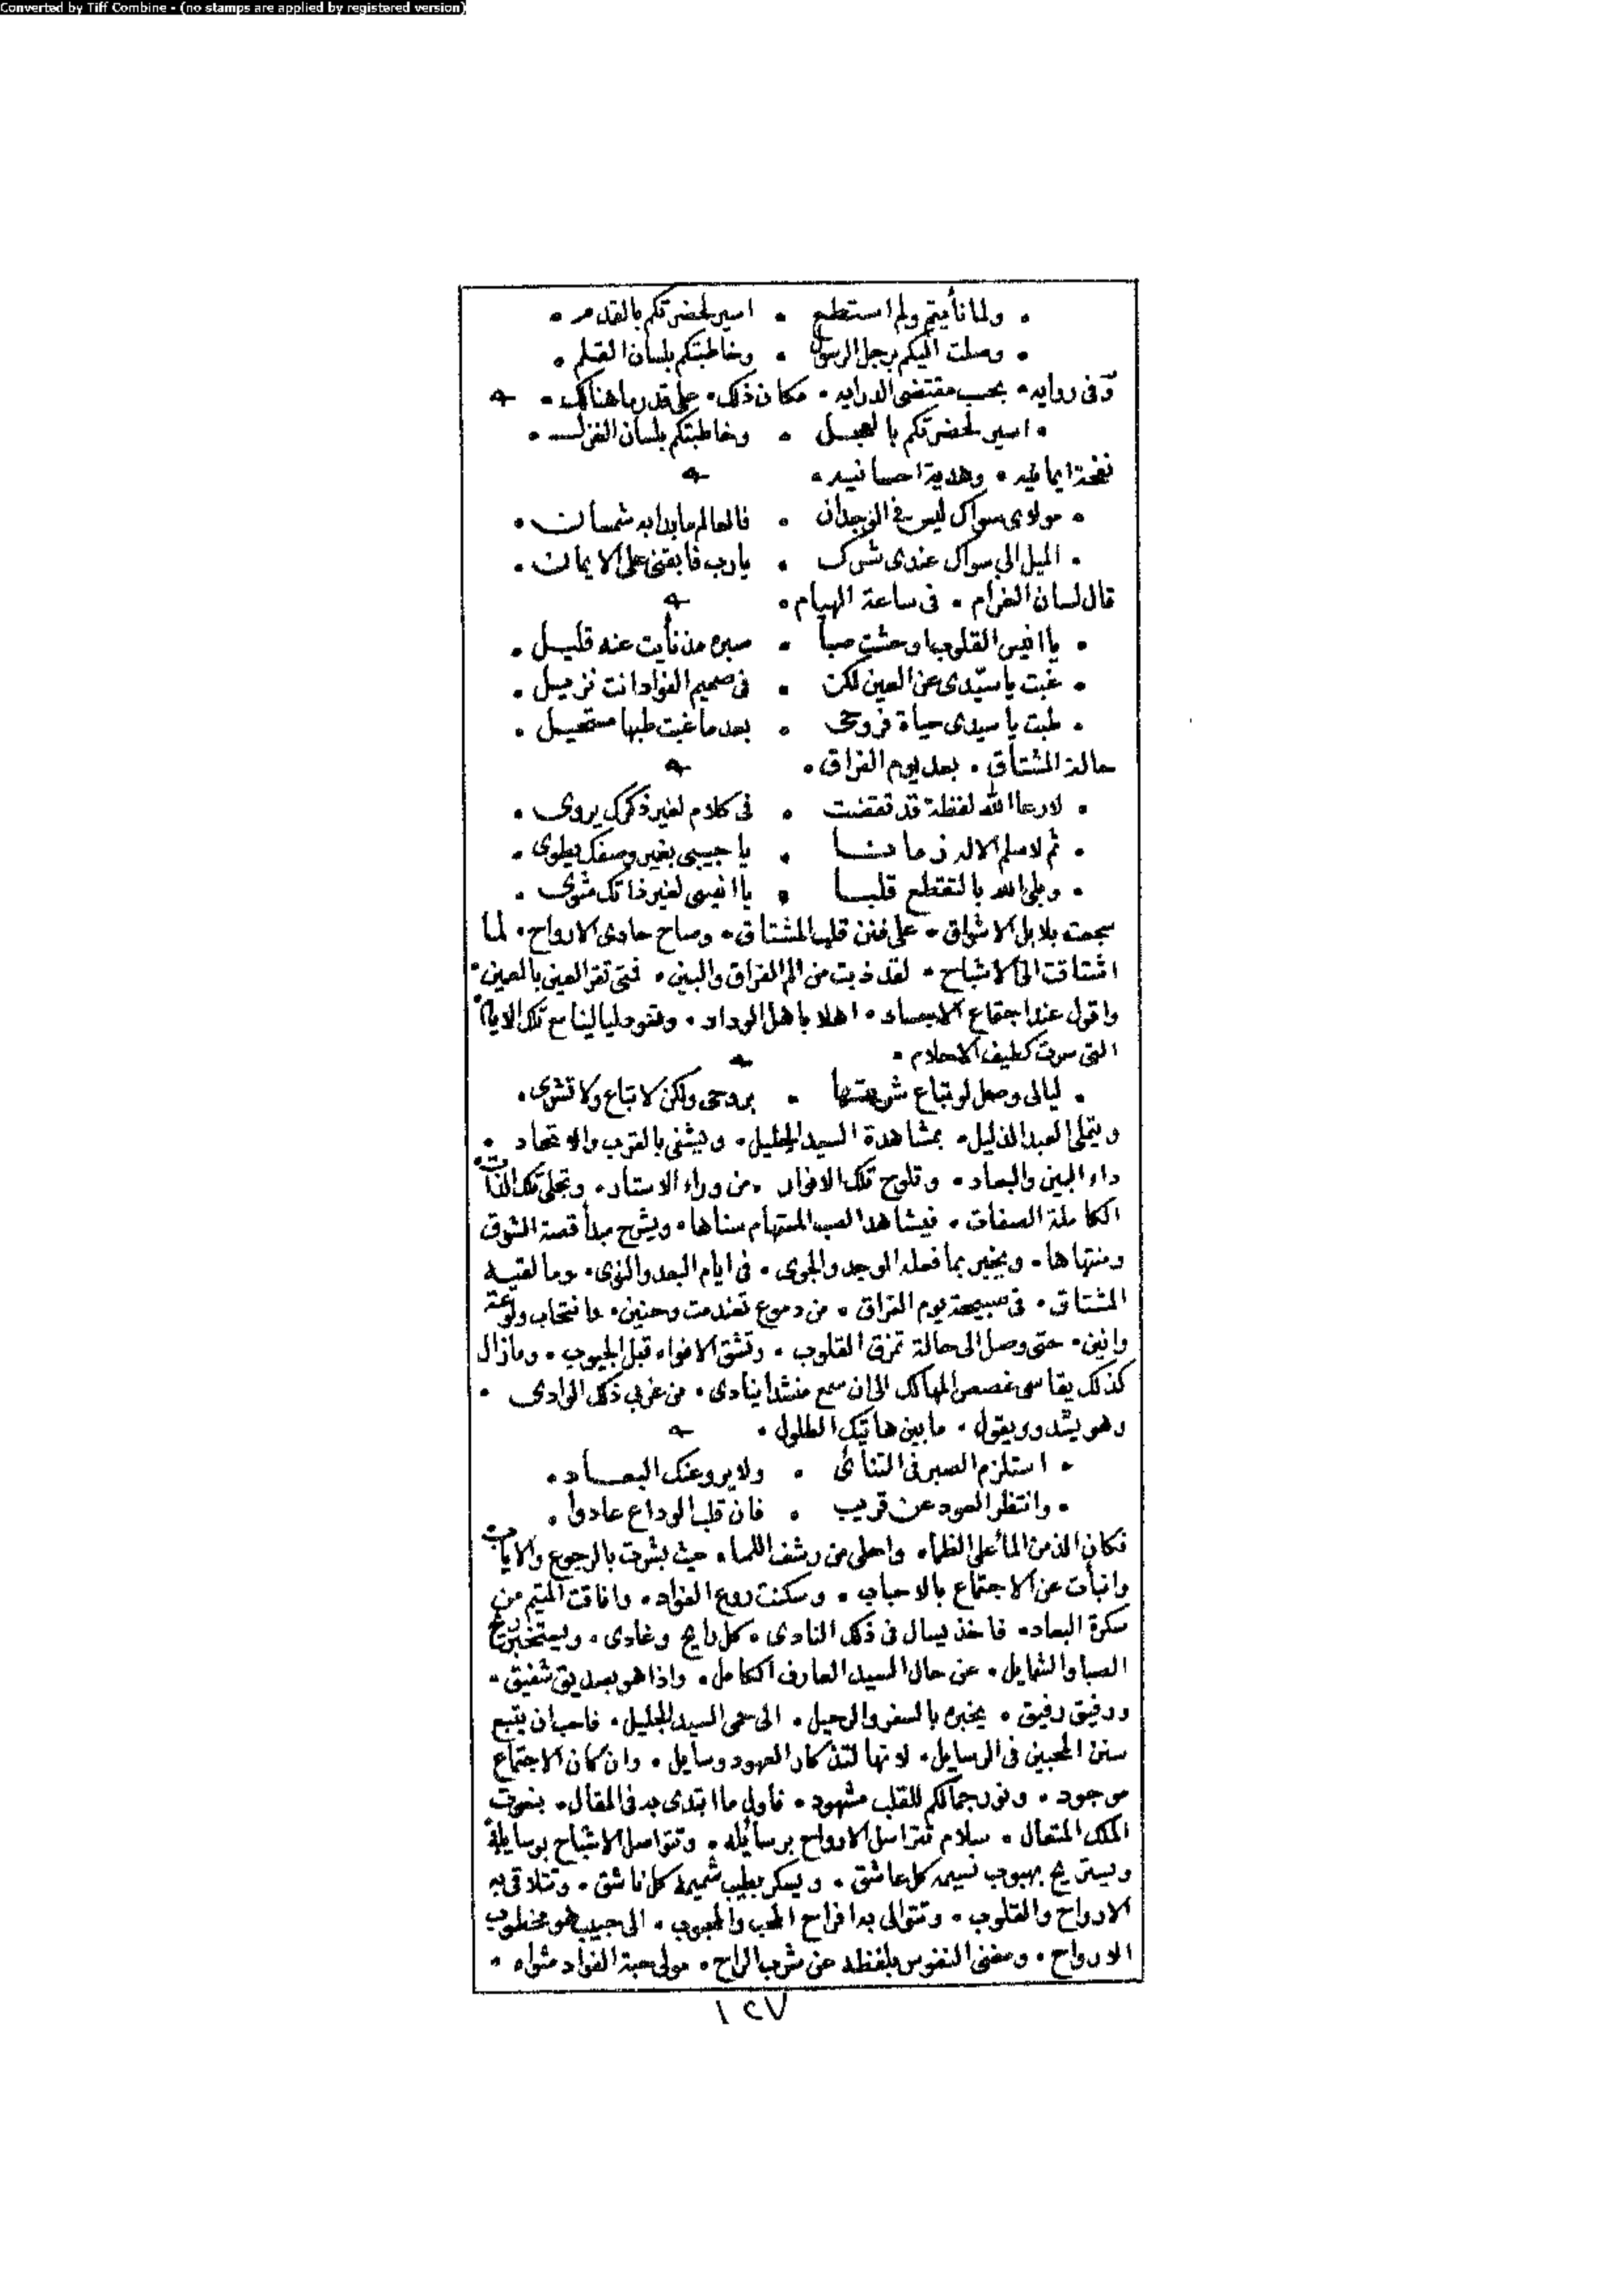 Converted by Tiff Combine - (no stamps are applied by registered version)
• ولما نأيتم ولم استطع • اسير لحضرتكم بالقدم •
• وصلت اليكم برجل الرسول • وخاطبتكم بلسان القلم •
وفى روايه • بحسب مقتضى الدرايه • مكان ذلك • على قدر ما هنالك •
• اسير لحضرتكم بالعجل • وخاطبتكم بلسان الغزل •
نفحة ايمانيه • وهدية احسانيه •
• مولاى سواك ليس فى الوجدان • فالعالم ما بدا به شمسان •
• الميل الى سواك عندى شرك • يارب فابقنى على الايمان •
قال لسان الغرام • فى ساعة الهيام •
• ياانيس القلوب اوحشت صبا • صبره مذ نأيت عنه قليل •
• غبت ياسيّدى عن العين لكن • فى صميم الفواد انت نزيل •
• طبت ياسيدى حياة فروحى • بعد ماغبت طبها مستحيل •
حالة المشتاق • بعد يوم الفراق •
• لارعا الله لفظة قد تقضت • فى كلام لغير ذكرك يروى •
• ثم لاسلم الاله زمانا • ياحبيبى بغير وصفك يطوى •
• وبلى الله بالتقطع قلبا • ياانيسى لغير ذاتك مثوى •
سجعت بلابل الاشواق • على فنن قلب المشتاق • وصاح حادى الارواح • لما
اشتاقت الى الاشباح • لقد ذبت من الم الفراق والبين • فمتى تقر العين بالعين •
واقول عند اجتماع الاجساد • اهلا باهل الوداد • وتعود ليالينا مع تلك الايام •
التى سرت كطيف الاحلام •
• ليالى وصل لو تباع شريتها • بروحى ولكن لا تباع ولا تشرى •
ويتملى العبد الذليل • بمشاهدة السيد الجليل • ويشفى بالقرب والاتحاد •
داء البين والبعاد • وتلوح تلك الانوار • من وراء الاستار • وتجلى تلك الذات •
الكاملة الصفات • فيشاهد الصب المستهام سناها • ويشرح مبدأ قصة الشوق
ومنتهاها • ويخبر بما فعله الوجد والجوى • فى ايام البعد والنوى • وما لقيه
المشتاق • فى صبيحة يوم الفراق • من دموع تعندمت وحنين • وانتحاب ولوعة
وانين • حتى وصل الى حالة تمزق القلوب • وتشق الافواه قبل الجيوب • ومازال
كذلك يقاسى غصص المهالك الى ان سمع منشدا ينادى • من غربى ذلك الوادى •
وهو يشدو ويقول • مابين هاتيك الطلول •
• استلزم الصبر فى التنائى • ولا يروعنك البعاد •
• وانتظر العود عن قريب • فان قلب الوداع عادوا •
فكان الذ من الماء على الظماء • واحلى من رشف اللماء • حيث بشرت بالرجوع والاياب
وانبأت عن الاجتماع بالاحباب • وسكنت روع الفواد • وافاقت المتيم من
سكرة البعاد • فاخذ يسال فى ذلك النادى • كل رايح وغادى • ويستخبر ريح
الصبا والشمايل • عن حال السيد العارف الكامل • واذا هو بصديق شفيق •
ورفيق رفيق • يخبره بالسفر والرحيل • الى حمى السيد الجليل • فاحب ان يتبع
سنن المحبين فى الرسايل • لانها لتذكار العهود وسايل • وان كان الاجتماع
موجود • ونور جمالكم للقلب مشهود • فأول ما ابتدى به فى المقال • بنعوت
الملك المتعال • سلام تتراسل الارواح برسائله • وتتواصل الاشباح بوسايله
ويستريح بهبوب نسيمه كل عاشق • ويسكر بطيب شميمه كل ناشق • وتتلاقى به
الارواح والقلوب • وتتوالى به افراح المحب والمحبوب • الى حبيب هو مخطوب
الارواح • ومغنى النفوس بلفظه عن شرب الراح • مولى حبة الفواد مثواه •
١٢٧